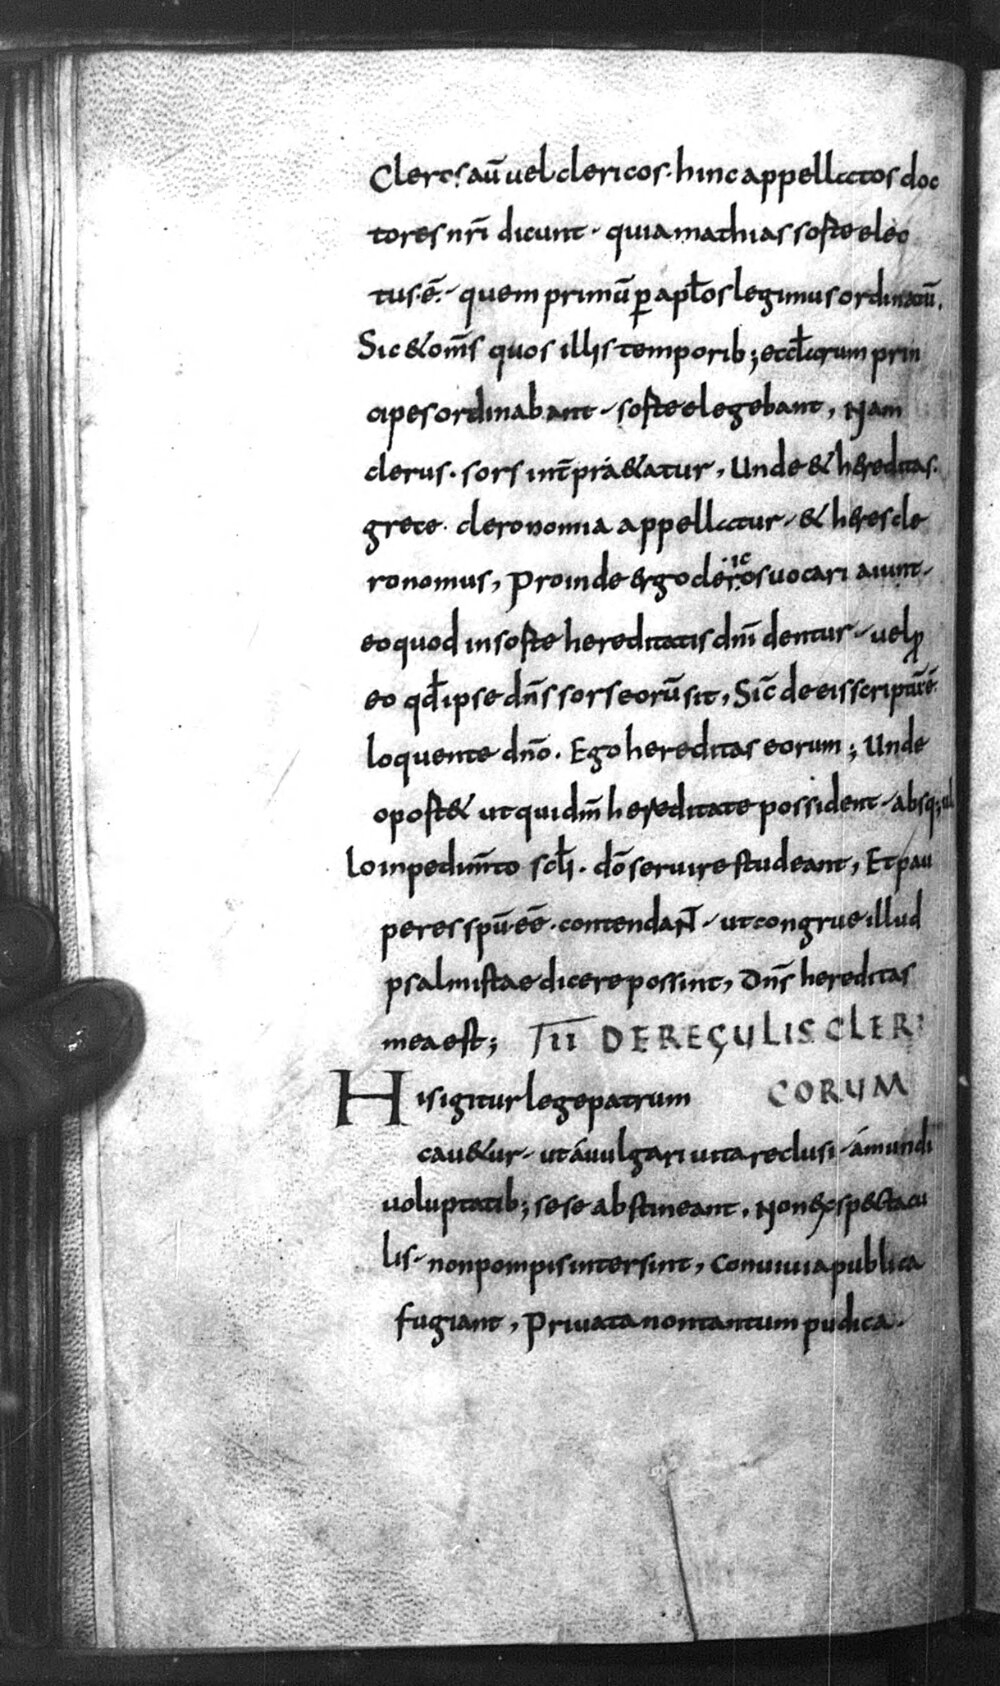 Cleros aū uel clericos · hinc appellatos doc
tores nr̄i dicunt · quia mathias sorte elec
tus · ē · quem primū ꝑ apl̄os legimus ordinatū .
Sic & om̄s quos illis temporib; eccl̄arum prin
cipes ordinabant · sorte elegebant , Nam
clerus · sors int̄prá&atur , Unde & hereditas ·
grece · cleronomia appellatur · & heres cle
ronomus , Proinde ergo cleros ·ic· uocari aiunt ·
eo quod in sorte hereditatis dn̄i dentur · uel ꝓ
eo qd̄ ipse dn̄s sors eorū sit , Sic̄ de eis scriptū ē
loquente dn̄o · Ego hereditas eorum ; Unde
oport& ut qui dm̄ hereditate possident · absq; ul
lo inpedim̄to scl̄i · dō seruire studeant , Et pau
peres spū · eē · contendaN̄T · ut congrue illud
psalmistae dicere possint , Dn̄s hereditas
mea est ; II DE REGULIS CLERI
CORUM
His igitur lege patrum
cau&ur · ut á uulgari uita reclusi · á mundi
uoluptatib; sese abstineant . Non &spectacu
lis · non pompis intersint , Conuiuia publica
fugiant , Priuata non tantum pudica ·